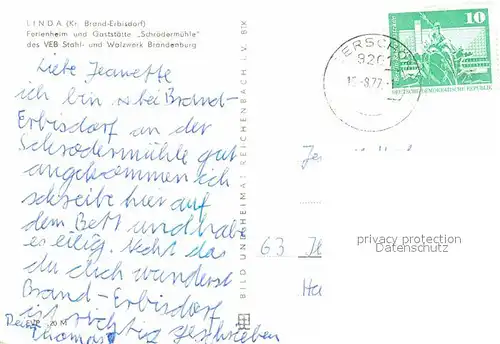 LINDA (Kr. Brand-Erbisdorf)
Ferienheim und Gaststätte „Schrödermühle"
des VEB Stahl- und Walzwerk Brandenburg
Liebe Jeanette
ich bin bei Brand-
Erbisdorf an der
Schrödermühle gut
angekommen ich
schreibe hier auf
dem Bett und hab
es eilig. Nicht das
du dich wunderst
Brand-Erbisdorf
ist richtig geschrieben
Dein Thomas
EVP 20 M
BILD UND HEIMAT REICHENBACH I. V. BIK
10
DEUTSCHE DEMOKRATISCHE REPUBLIK
63
privacy protection
Datenschutz